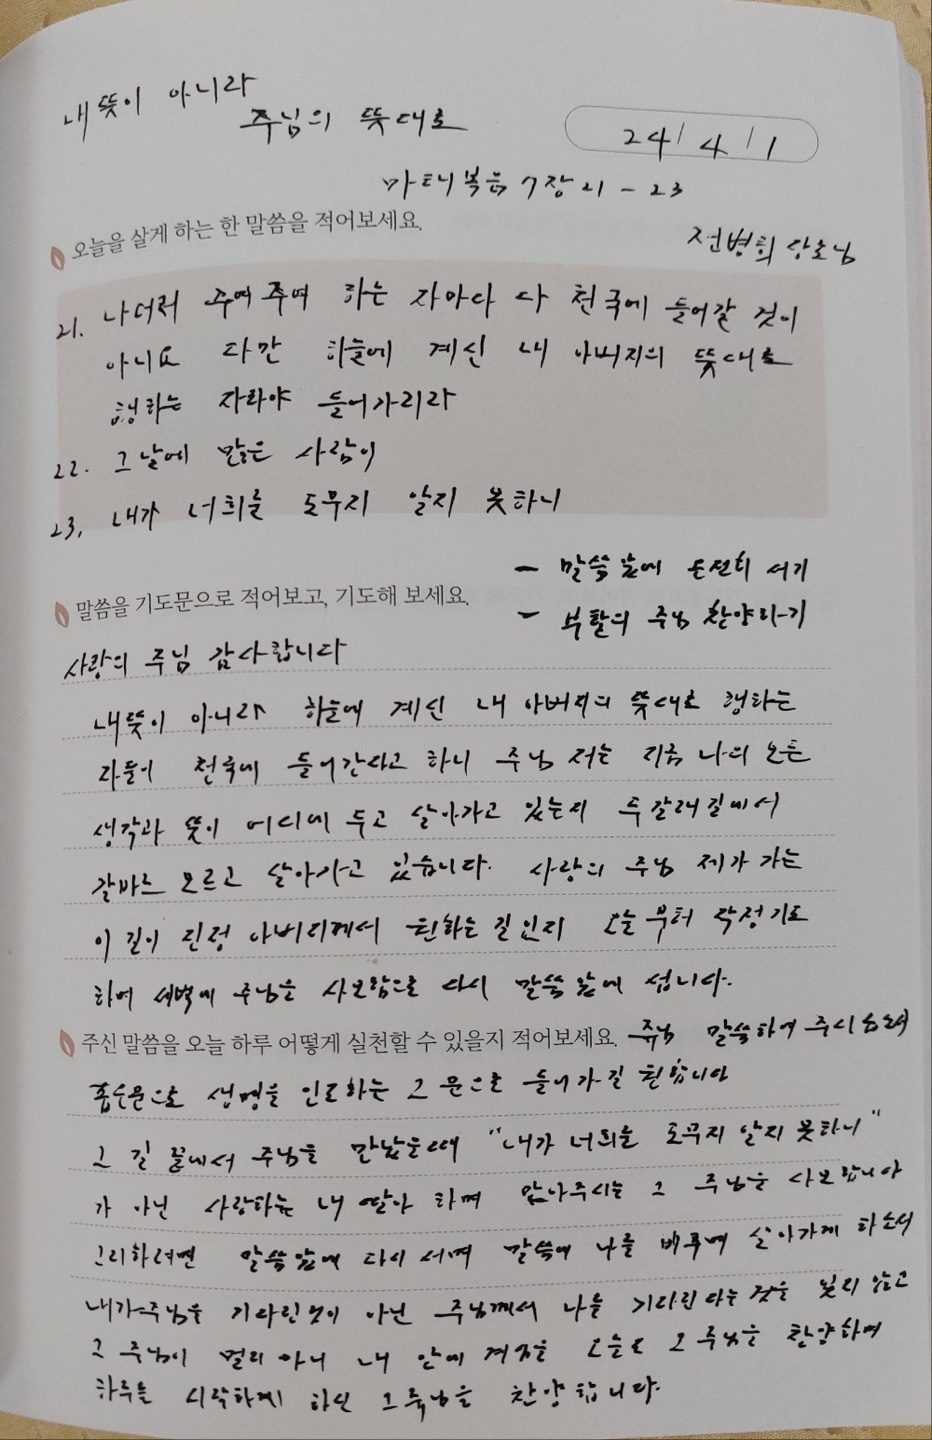 내뜻이 아니라
주님의 뜻대로
24/ 4/ 1
마태복음 7장 21 - 23
오늘을 살게 하는 한 말씀을 적어보세요.
전병희 장로님
21. 나더러 주여주여 하는 자마다 다 천국에 들어갈 것이
아니요 다만 하늘에 계신 내 아버지의 뜻대로
행하는 자라야 들어가리라
22. 그날에 많은 사람이
23. 내가 너희를 도무지 알지 못하니
- 말씀 앞에 온전히 서기
말씀을 기도문으로 적어보고, 기도해 보세요.
- 부활의 주님 찬양하기
사랑의 주님 감사합니다
내뜻이 아니라 하늘에 계신 내 아버지의 뜻대로 행하는
자들이 천국에 들어간다고 하니 주님 저는 지금 나의 모든
생각과 뜻이 어디에 두고 살아가고 있는지 두갈래길에서
갈바를 모르고 살아가고 있습니다. 사랑의 주님 제가 가는
이 길이 진정 아버지께서 원하는 길인지 오늘부터 작정기도
하며 새벽에 주님을 사모함으로 다시 말씀 앞에 섭니다.
주신 말씀을 오늘 하루 어떻게 실천할 수 있을지 적어보세요.
주님 말씀하여 주시옵소서
좁은문으로 생명을 인도하는 그 문으로 들어가길 원합니다
그 길 끝에서 주님을 만났을때 "내가 너희를 도무지 알지 못하니"
가 아닌 사랑하는 내 딸아 하며 안아주시는 그 주님을 사모합니다
그리하려면 말씀앞에 다시 서며 말씀에 나를 비추며 살아가게 하소서
내가주님을 기다린것이 아닌 주님께서 나를 기다린다는 것을 잊지 않고
그 주님이 멀리 아니 내 안에 계심을 오늘도 그 주님을 찬양하며
하루를 시작하게 하신 그주님을 찬양합니다.